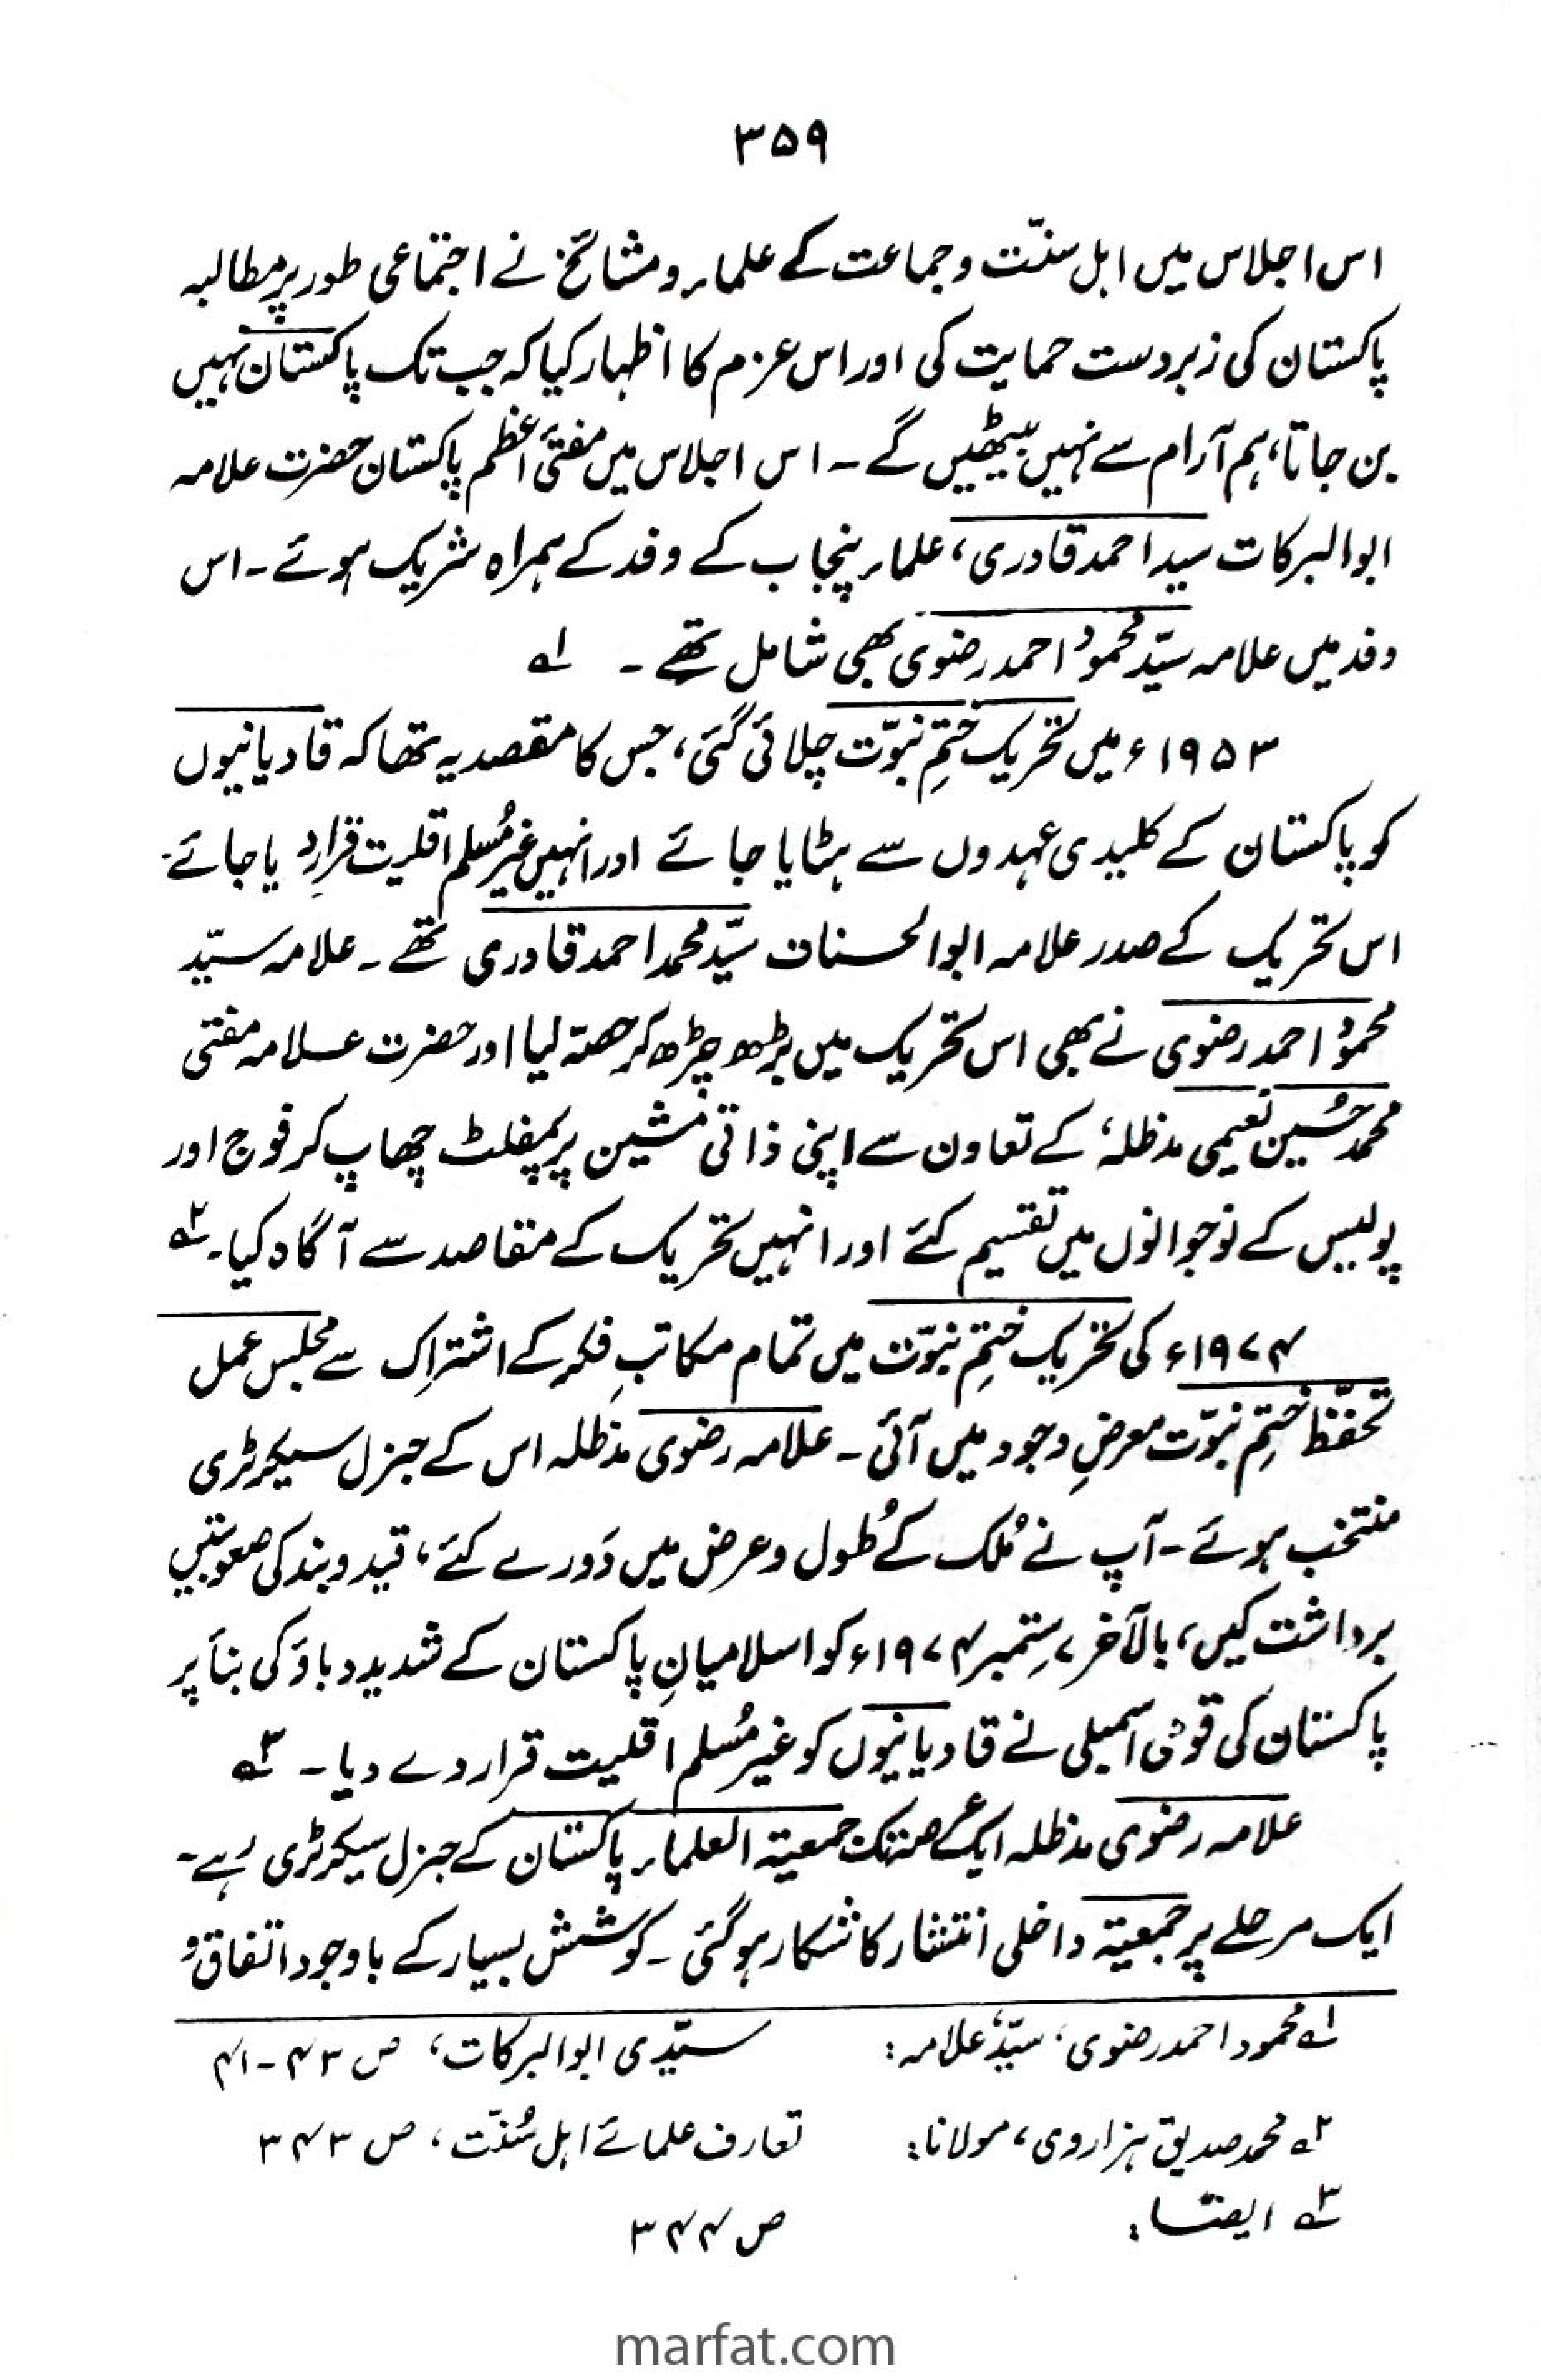 ۳۵۹
اس اجلاس میں اہل سنّت و جماعت کے علماء و مشائخ نے اجتماعی طور پر مطالبہ
پاکستان کی زبردست حمایت کی اور اس عزم کا اظہار کیا کہ جب تک پاکستان نہیں
بن جاتا، ہم آرام سے نہیں بیٹھیں گے۔ اس اجلاس میں مفتیٔ اعظم پاکستان حضرت علامہ
ابوالبرکات سید احمد قادری، علماء پنجاب کے وفد کے ہمراہ شریک ہوئے۔ اس
وفد میں علامہ سیّد محمود احمد رضوی بھی شامل تھے۔ ؎۱
۱۹۵۳ء میں تحریک ختمِ نبوّت چلائی گئی، جس کا مقصد یہ تھا کہ قادیانیوں
کو پاکستان کے کلیدی عہدوں سے ہٹایا جائے اور انہیں غیر مُسلم اقلیت قرار دیا جائے۔
اس تحریک کے صدر علامہ ابوالحسنات سیّد محمد احمد قادری تھے۔ علامہ سیّد
محمُود احمد رضوی نے بھی اس تحریک میں بڑھ چڑھ کر حصّہ لیا اور حضرت علامہ مفتی
محمد حُسین نعیمی مدظلہٗ کے تعاون سے اپنی ذاتی مشین پر پمفلٹ چھاپ کر فوج اور
پولیس کے نوجوانوں میں تقسیم کئے اور انہیں تحریک کے مقاصد سے آگاہ کیا۔ ؎۲
۱۹۷۴ء کی تحریک ختمِ نبوّت میں تمام مکاتبِ فکر کے اشتراک سے مجلس عمل
تحفّظ ختمِ نبوّت معرضِ وجود میں آئی۔ علامہ رضوی مدظلہ اس کے جنرل سیکرٹری
منتخب ہوئے۔ آپ نے مُلک کے طُول و عرض میں دَورے کئے، قید و بند کی صعوبتیں
برداشت کیں، بالآخر ۷ ستمبر ۱۹۷۴ء کو اسلامیانِ پاکستان کے شدید دباؤ کی بنأ پر
پاکستان کی قومی اسمبلی نے قادیانیوں کو غیر مُسلم اقلیت قرار دے دیا۔ ؎۳
علامہ رضوی مدظلہ ایک عرصہ تک جمعیۃ العلماء پاکستان کے جنرل سیکرٹری رہے۔
ایک مرحلے پر جمعیۃ داخلی انتشار کا شکار ہو گئی۔ کوشش بسیار کے باوجود اتفاق و
؎۱ محمود احمد رضوی، سیّد، علامہ: سیّدی ابوالبرکات، ص ۴۳-۴۱
؎۲ محمد صدیق ہزاروی، مولانا: تعارف علمائے اہل سُنّت، ص ۳۴۳
؎۳ ایضًا: ص ۳۴۴
marfat.com